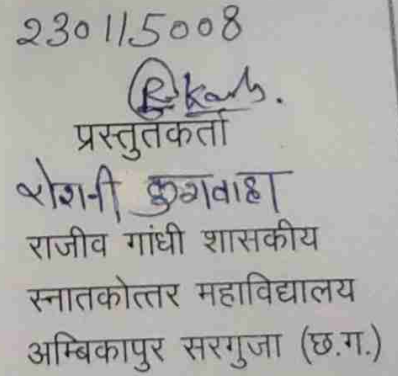 230115008
प्रस्तुतकर्ता
रोशनी कुशवाहा
राजीव गांधी शासकीय
स्नातकोत्तर महाविद्यालय
अम्बिकापुर सरगुजा (छ.ग.)